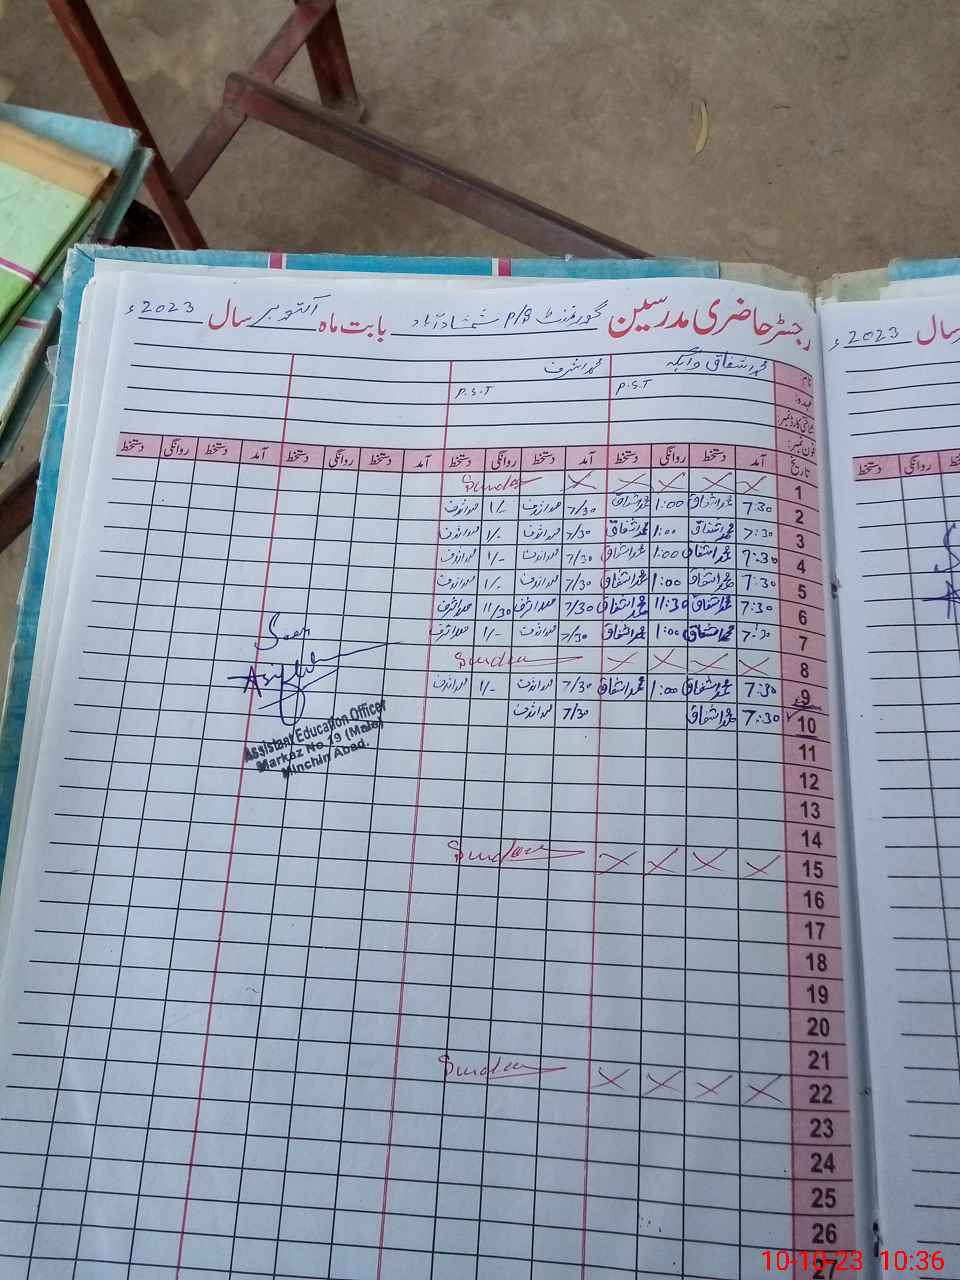 رجسٹر حاضری مدرسین گورنمنٹ P/S شمشاد آباد بابت ماہ اکتوبر سال 2023ء
2023ء سال
نام: محمد اشفاق محمد اشرف
عہدہ: P.S.T P.S.T
شناختی کارڈ نمبر
فون نمبر:
تاریخ آمد دستخط روانگی دستخط آمد دستخط روانگی دستخط آمد دستخط روانگی دستخط آمد دستخط روانگی دستخط
دستخط روانگی
1 X X X X X Sunday
2 7:30 محمد اشفاق 1:00 محمد اشفاق 7/30 محمد اشرف 1/- محمد اشرف
3 7:30 محمد اشفاق 1:00 محمد اشفاق 7/30 محمد اشرف 1/- محمد اشرف
4 7:30 محمد اشفاق 1:00 محمد اشفاق 7/30 محمد اشرف 1/- محمد اشرف
5 7:30 محمد اشفاق 1:00 محمد اشفاق 7/30 محمد اشرف 1/- محمد اشرف
6 7:30 محمد اشفاق 11:30 محمد اشفاق 7/30 محمد اشرف 11/30 محمد اشرف
7 7:30 محمد اشفاق 1:00 محمد اشفاق 7/30 محمد اشرف 1/- محمد اشرف
8 X X X X Sunday
9 7:30 محمد اشفاق 1:00 محمد اشفاق 7/30 محمد اشرف 1/- محمد اشرف
10 7:30 محمد اشفاق 7/30 محمد اشرف
Seen
Assistant Education Officer
Markaz No 19 (Male)
Minchin Abad.
11
12
13
14
15 X X X X Sunday
16
17
18
19
20
21
22 X X X X Sunday
23
24
25
26
27
10-10-23 10:36